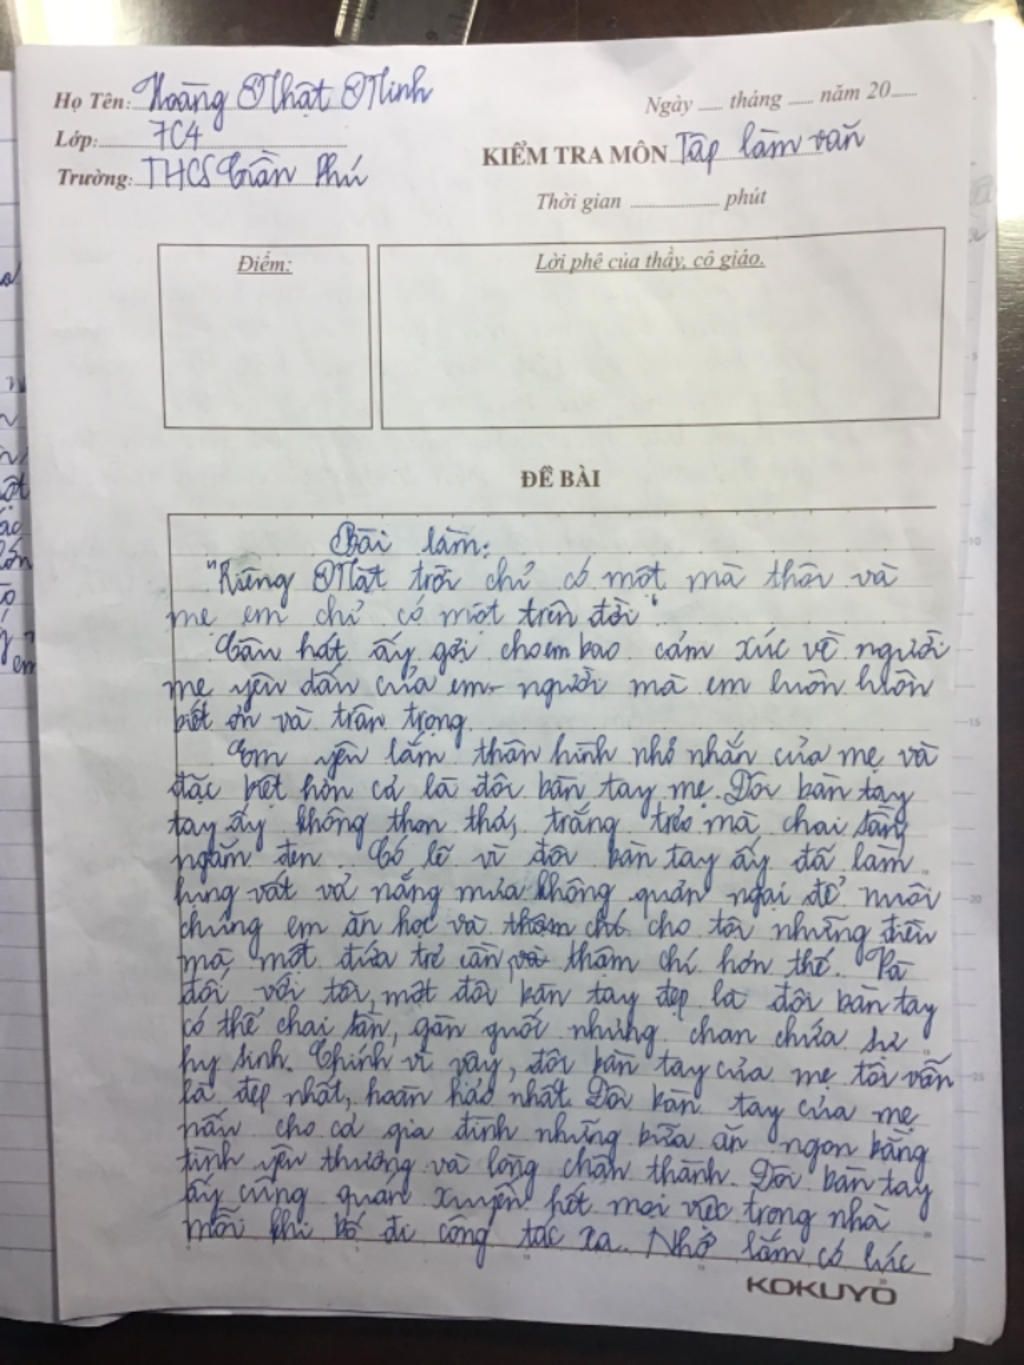 Họ Tên: Hoàng Nhật Minh
Ngày ...... tháng ...... năm 20......
Lớp: 7C4
KIỂM TRA MÔN Tập làm văn
Trường: THCS Trần Phú
Thời gian .................. phút
Điểm:
Lời phê của thầy, cô giáo.
ĐỀ BÀI
Bài làm:
"Riêng Mặt trời chỉ có một mà thôi và
mẹ em chỉ có một trên đời".
Câu hát ấy gợi cho em bao cảm xúc về người
mẹ yêu dấu của em - người mà em luôn luôn
biết ơn và trân trọng.
Em yêu lắm thân hình nhỏ nhắn của mẹ và
đặc biệt hơn cả là đôi bàn tay mẹ. Đôi bàn tay
tay ấy không thon thả, trắng trẻo mà chai sần,
ngăm đen. Có lẽ vì đôi bàn tay ấy đã làm
lụng vất vả nắng mưa không quản ngại để nuôi
chúng em ăn học và thậm chí cho tôi những điều
mà một đứa trẻ cần, và thậm chí hơn thế. Và
đối với tôi, một đôi bàn tay đẹp là đôi bàn tay
có thể chai sần, gân guốc nhưng chan chứa sự
hy sinh. Chính vì vậy, đôi bàn tay của mẹ tôi vẫn
là đẹp nhất, hoàn hảo nhất. Đôi bàn tay của mẹ
nấu cho cả gia đình những bữa ăn ngon bằng
tình yêu thương và lòng chân thành. Đôi bàn tay
ấy cũng quán xuyến hết mọi việc trong nhà
mỗi khi bố đi công tác xa. Nhớ lắm có lúc
KOKUYO